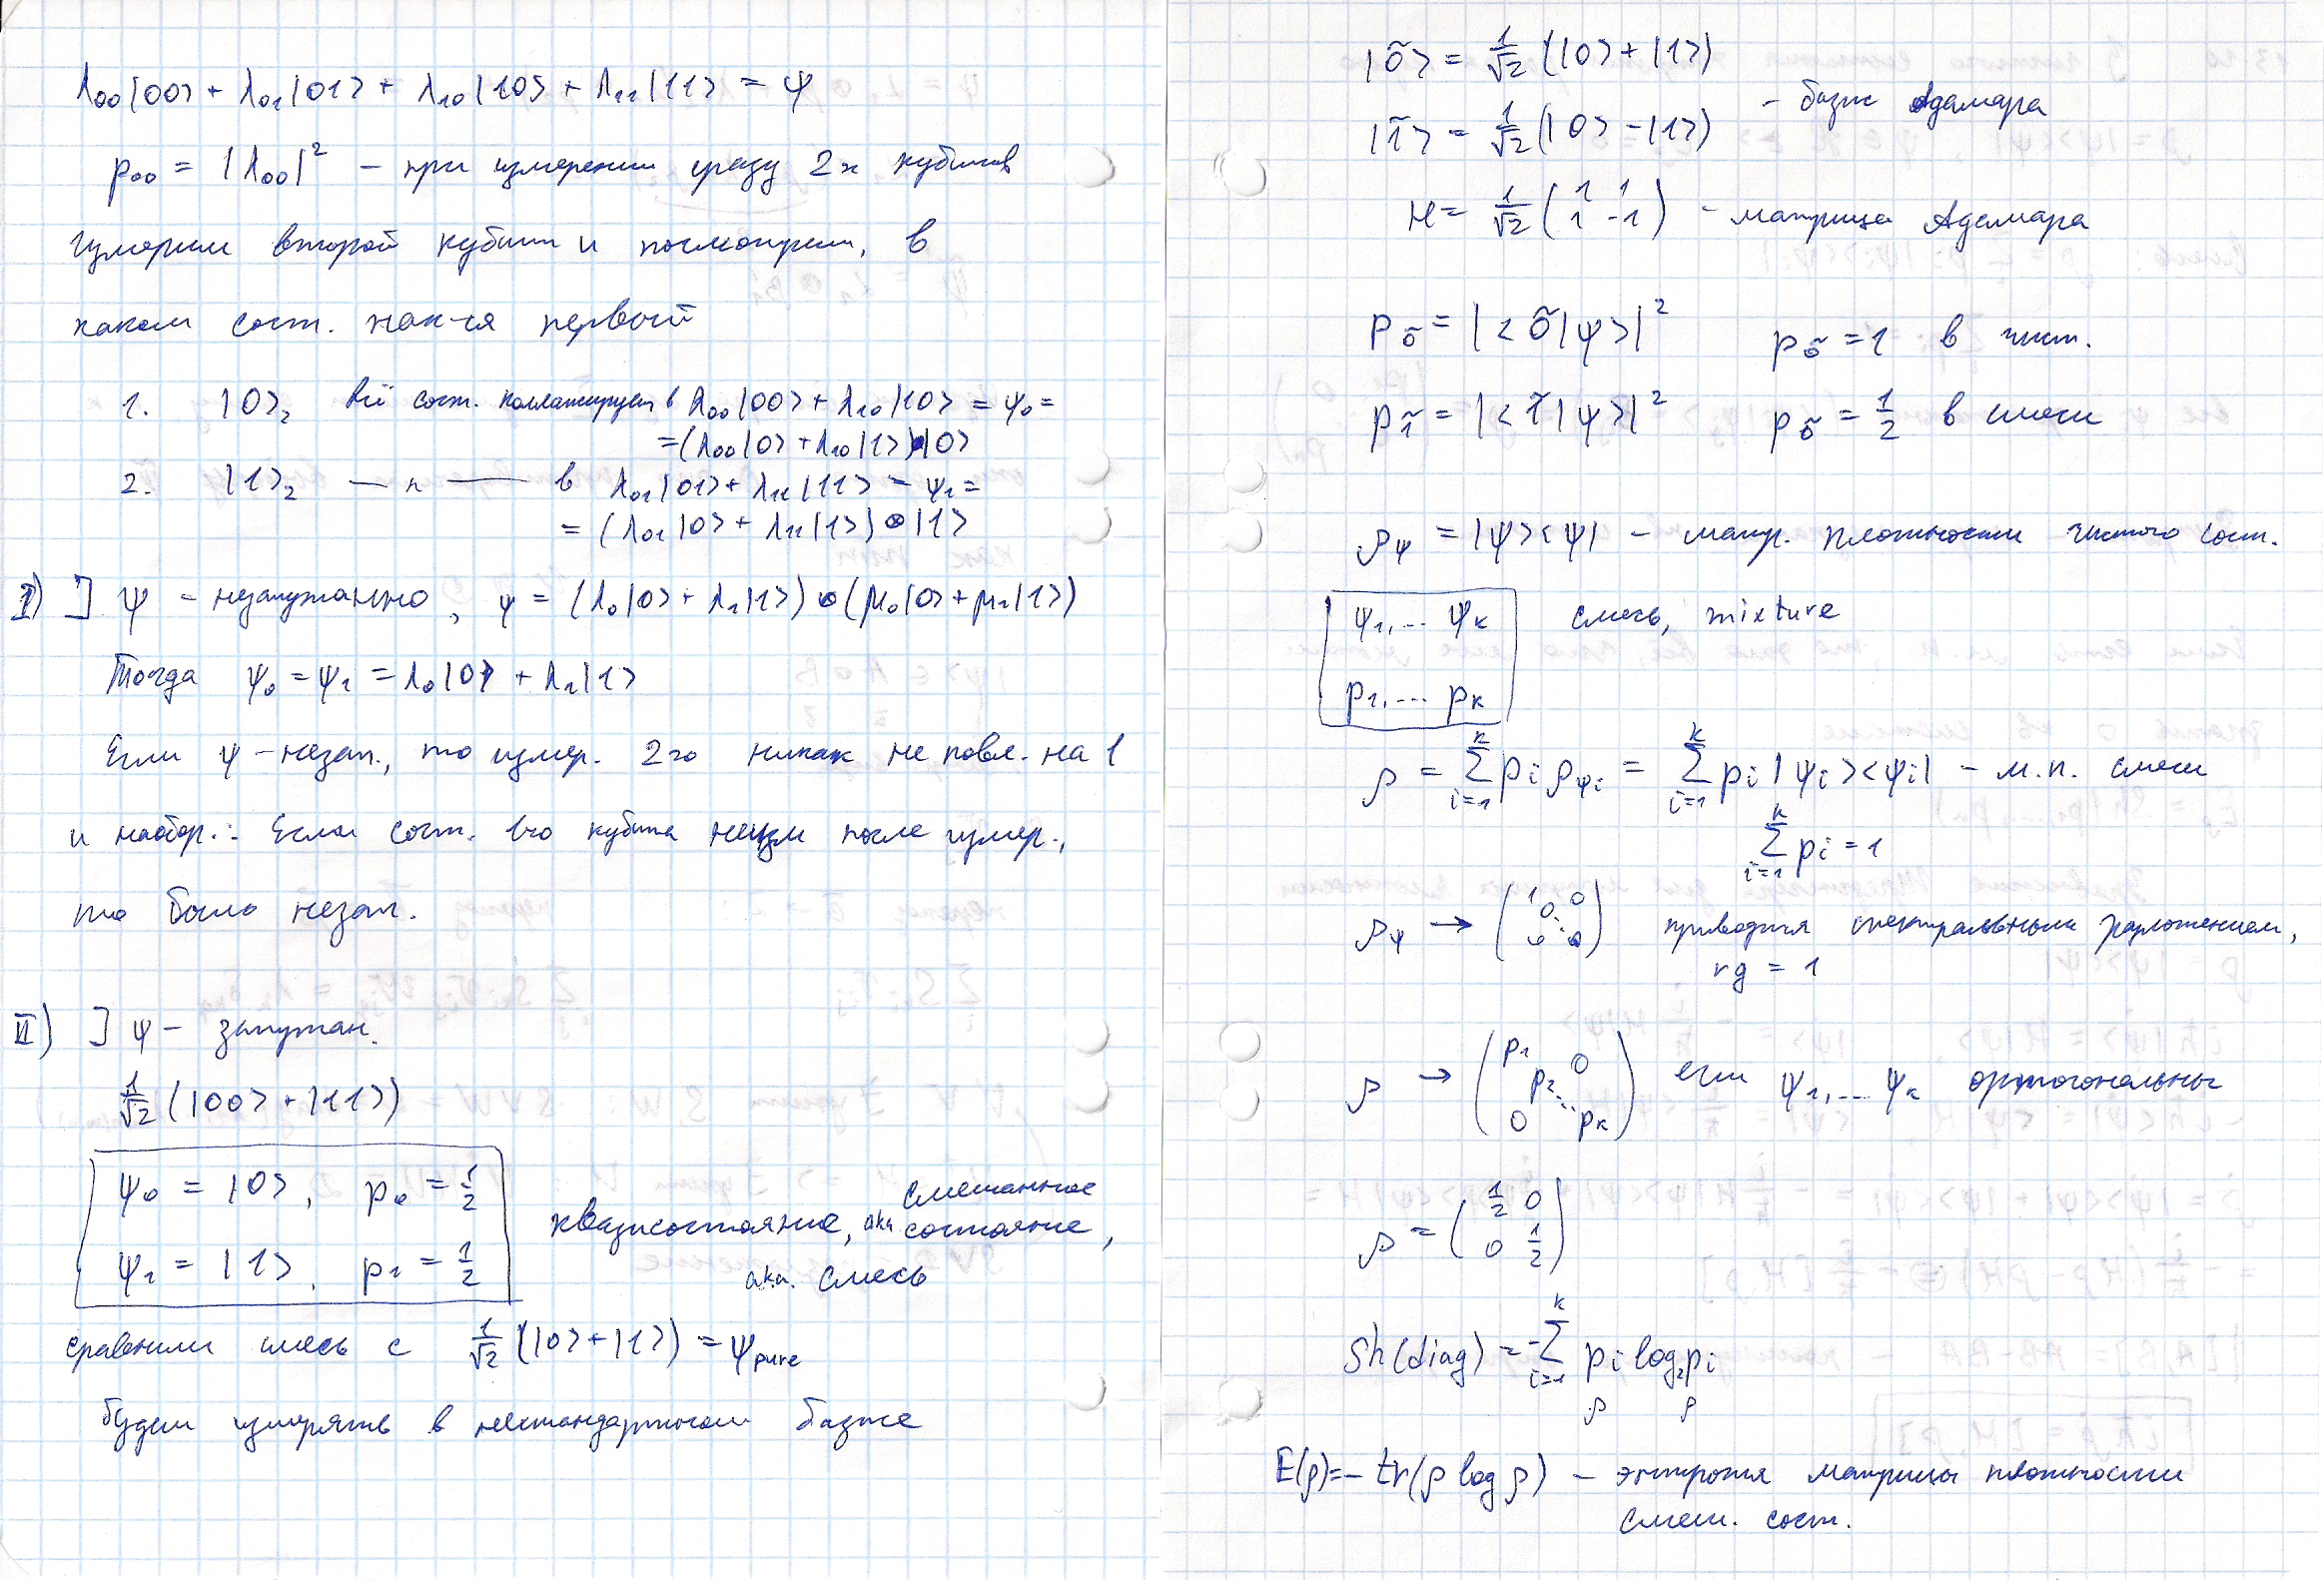 λ₀₀|00> + λ₀₁|01> + λ₁₀|10> + λ₁₁|11> = ψ
p₀₀ = |λ₀₀|² – при измерении сразу 2х кубитов
Измерим второй кубит и посмотрим, в
каком сост. нах-ся первый
1. |0>₂ всё сост. коллапсирует в λ₀₀|00> + λ₁₀|10> = ψ₀ =
= (λ₀₀|0> + λ₁₀|1>)⊗|0>
2. |1>₂ —"— в λ₀₁|01> + λ₁₁|11> = ψ₁ =
= (λ₀₁|0> + λ₁₁|1>)⊗|1>
I) ] ψ – незапутанно, ψ = (λ₀|0> + λ₁|1>)⊗(μ₀|0> + μ₁|1>)
Тогда ψ₀ = ψ₁ = λ₀|0> + λ₁|1>
Если ψ – незап., то измер. 2го никак не повл. на 1
и наобор.: Если сост. 1го кубита неизм после измер.,
то было незап.
II) ] ψ – запутан.
1/√2 (|00> + |11>)
ψ₀ = |0>, p₀ = 1/2
ψ₁ = |1>, p₁ = 1/2
квазисостояние, aka смешанное состояние,
aka. смесь
сравним смесь с 1/√2 (|0> + |1>) = ψ_pure
Будем измерять в нестандартном базисе
|õ> = 1/√2 (|0> + |1>)
|1̃> = 1/√2 (|0> - |1>) – базис Адамара
H = 1/√2 (1 1; 1 -1) – матрица Адамара
p_õ = |<õ|ψ>|² p_õ = 1 в чист.
p_1̃ = |<1̃|ψ>|² p_õ = 1/2 в смеси
ρ_ψ = |ψ><ψ| – матр. плотности чистого сост.
ψ₁,... ψₖ смесь, mixture
p₁,... pₖ
ρ = Σᵢ₌₁ᵏ pᵢ ρ_ψᵢ = Σᵢ₌₁ᵏ pᵢ |ψᵢ><ψᵢ| – м.п. смеси
Σᵢ₌₁ᵏ pᵢ = 1
ρ_ψ → (1 0 0 ⋱ 0 0) приводится спектральным разложением,
rg = 1
ρ → (p₁ 0 p₂ ⋱ 0 pₖ) если ψ₁,... ψₖ ортогональны
ρ = (1/2 0; 0 1/2)
Sh(diag) = -Σᵢ₌₁ᵏ pᵢ log₂ pᵢ
ρ ρ
E(ρ) = – tr(ρ log ρ) – энтропия матрицы плотности
смеш. сост.